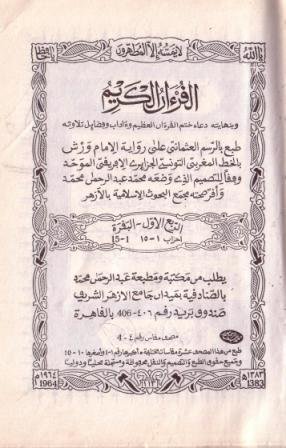 يا الله لا يمسه إلا المطهرون يا حافظ
القرءان الكريم
وبنهايته دعاء ختم القرءان العظيم وءاداب وفضايل تلاوته
طبع بالرسم العثماني على رواية الإمام ورش
بالخط المغربي التونسي الجزايري الإفريقي الموحد
وفقا للتصميم الذي وضعه محمد عبد الرحمن محمد
وأقر صحته مجمع البحوث الإسلامية بالأزهر
الربع الأول - البقرة
أحزاب ١-١٥ 1-15
يطلب من مكتبة ومطبعة عبد الرحمن محمد
بالصنادقية بميدان جامع الأزهر الشريف
صندوق بريد رقم ٤٠٦-406 بالقاهرة
مصحف مقاس رقم ٤-4
طبع من هذا المصحف عشرة مقاسات مختلفة أكبرها رقم ١-1 وأصغرها ١٠-10
وجميع حقوق الطبع والتصميم والنقل محفوظة ومسجلة محليا ودوليا
١٩٦٤م ١٣٨٣ه
1964 1383